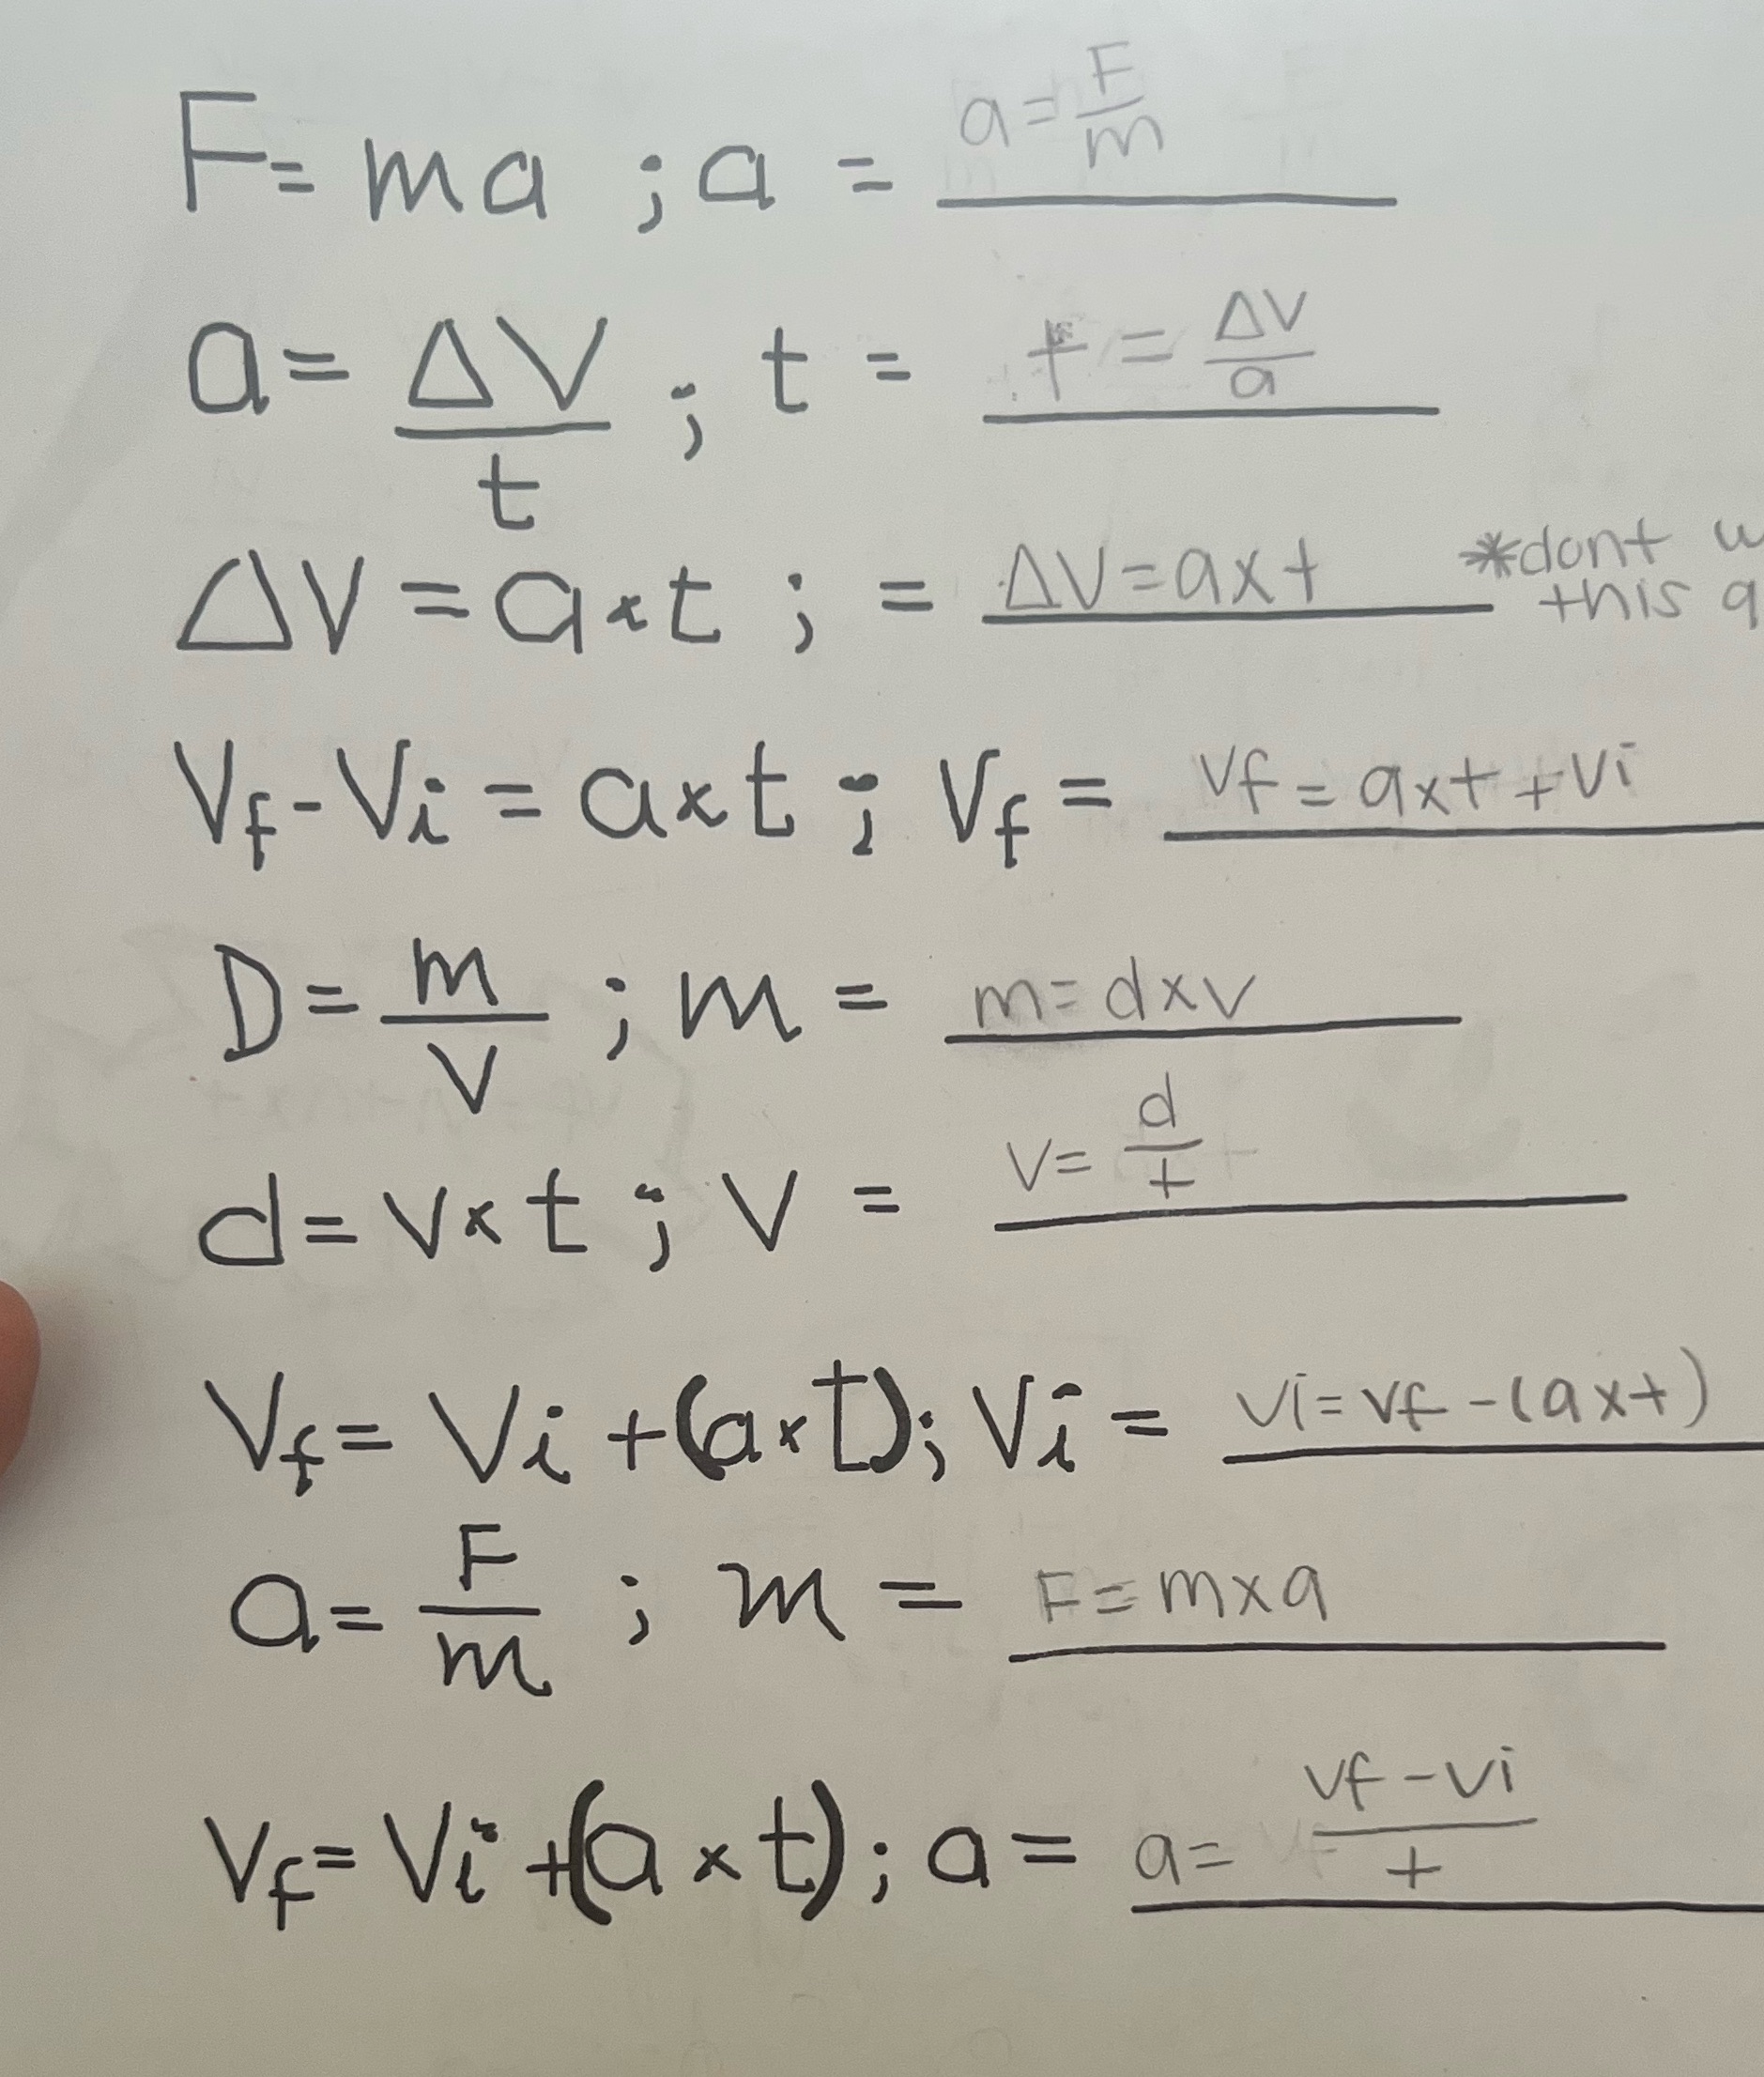 F = ma ; a = a = F/m
a = ΔV/t ; t = t = ΔV/a
ΔV = a × t ; = ΔV = a x t *dont
this
Vf - Vi = a x t ; Vf = Vf = a x t + Vi
D = m/V ; m = m = d x v
d = v × t ; V = V = d/t
Vf = Vi + (a × t) ; Vi = Vi = Vf - (a x t)
a = F/m ; m = F = m x a
Vf = Vi + (a × t) ; a = a = Vf - Vi/t